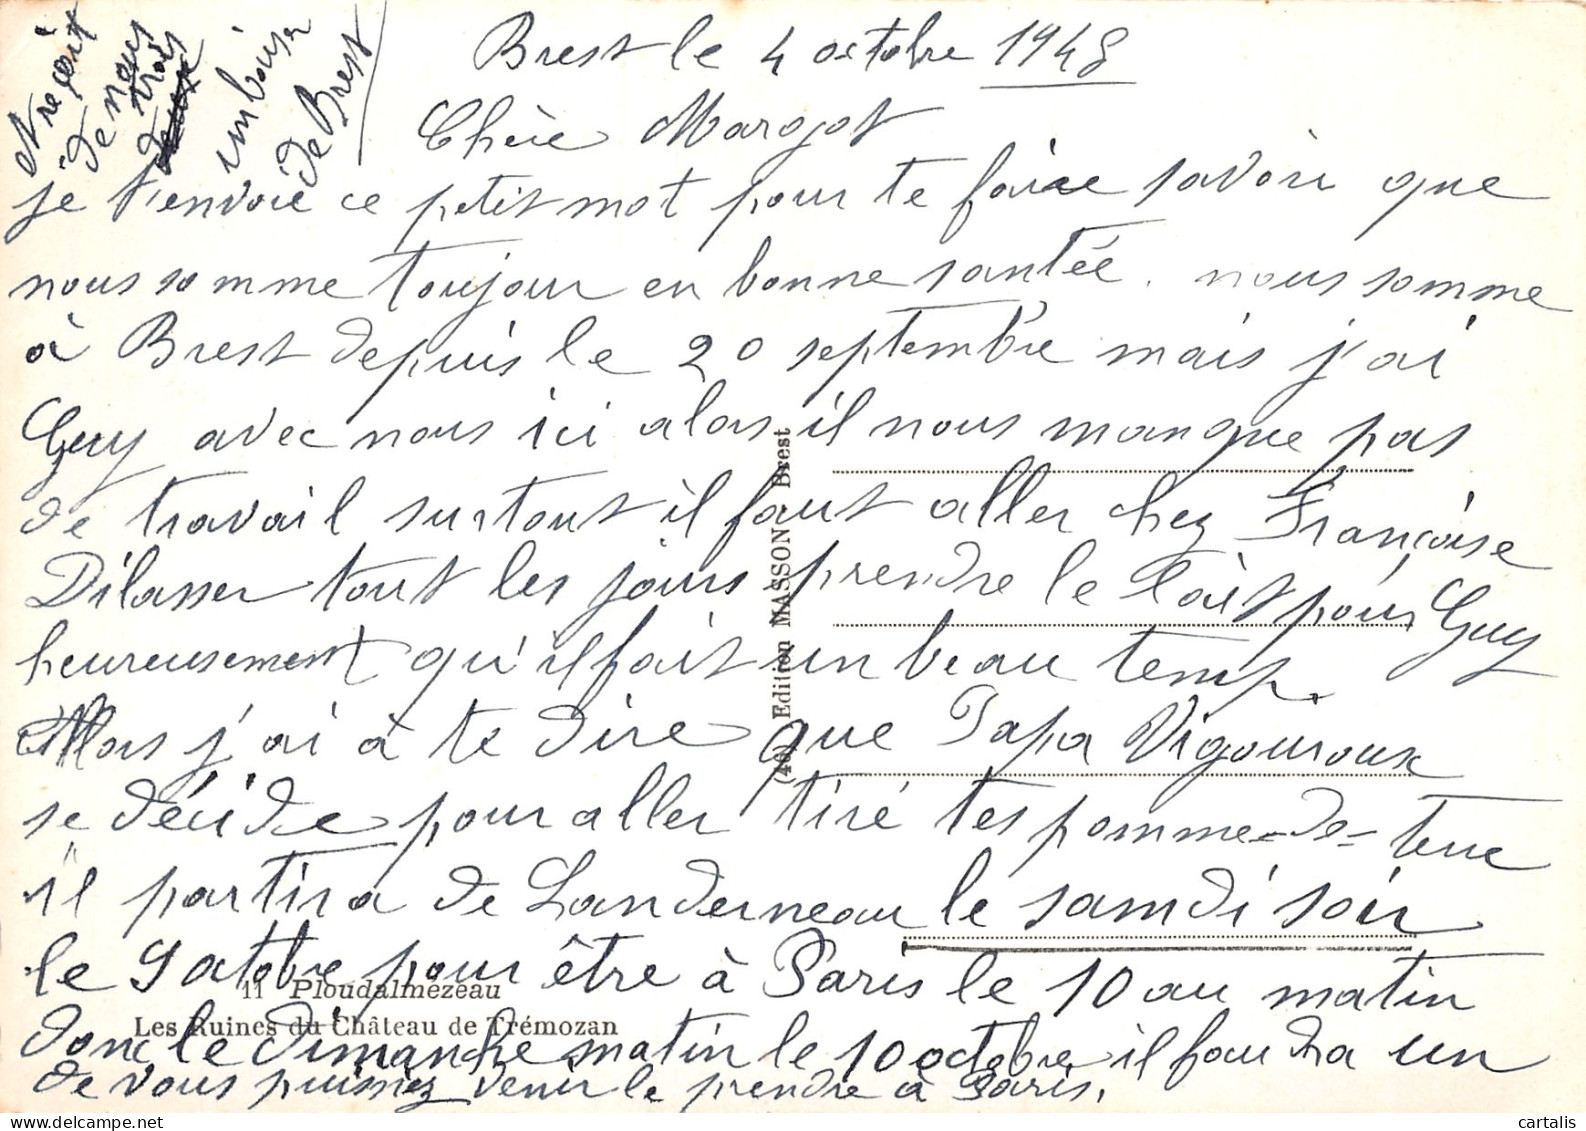 Brest le 4 octobre 1948
Chère Margot
je t'envoie ce petit mot pour te faire savoir que
nous somme toujour en bonne santée. nous somme
à Brest depuis le 20 septembre mais j'ai
Guy avec nous ici alors il nous manque pas
de travail surtout il faut aller chez Françoise
Dilasser tout les jours prendre le lait pour Guy
heureusement qu'il fait un beau temp.
Alors j'ai à te dire que Papa Vigouroux
se décide pour aller tiré tes pomme-de-terre
il partira de Landerneau le samdi soir
le 9 octobre pour être à Paris le 10 au matin
donc le dimanche matin le 10 octobre il faudra un
de vous puissiez venir le prendre à Paris.
reçoit
de nous
trois
un baiser
de Brest
(46) Edition MASSON Brest
11 Ploudalmézeau
Les Ruines du Château de Trémozan
cartalis